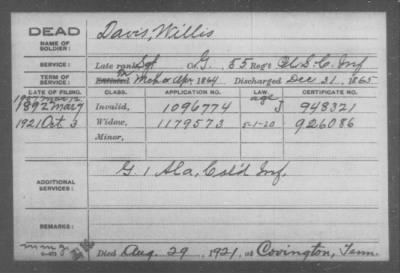 DEAD
NAME OF SOLDIER: Davis, Willis
SERVICE: Late rank Sgt Co. G. 55 Reg't U.S.C. Inf
TERM OF SERVICE: Enlisted Mch or Apr 1864. Discharged Dec 31, 1865
DATE OF FILING. CLASS. APPLICATION NO. LAW. CERTIFICATE NO.
1907 Mar 12 age
1892 May 7 Invalid, 1096774 J 948321
1921 Oct 3 Widow, 1179573 5-1-20 926086
Minor,
ADDITIONAL SERVICES: G. 1 Ala. Col'd Inf.
REMARKS:
Died Aug. 29, 1921, at Covington, Tenn.